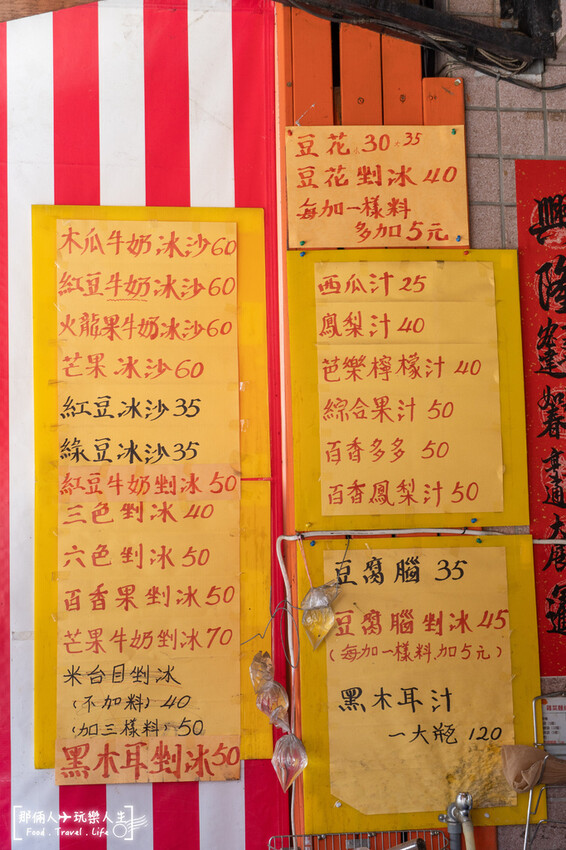 木瓜牛奶冰沙60
紅豆牛奶冰沙60
火龍果牛奶冰沙60
芒果冰沙60
紅豆冰沙35
綠豆冰沙35
紅豆牛奶剉冰50
三色剉冰40
六色剉冰50
百香果剉冰50
芒果牛奶剉冰70
米台目剉冰
(不加料)40
(加三樣料)50
黑木耳剉冰50
豆花 30 35
豆花剉冰40
每加一樣料
多加5元
西瓜汁25
鳳梨汁40
芭樂檸檬汁40
綜合果汁50
百香多多50
百香鳳梨汁50
豆腐腦35
豆腐腦剉冰45
(每加一樣料.加5元)
黑木耳汁
一大瓶120
興隆
春
亨通
大
運
那倆人玩樂人生
Food . Travel . Life